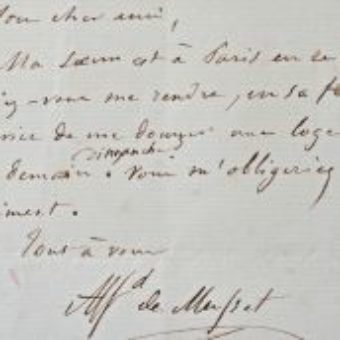 Mon cher ami,
Ma soeur est à Paris en ce
-vous me rendre, en sa
de me donner une loge
dimanche
demain. Vous m'obligeriez
iment.
Tout à vous
Alfd de Musset